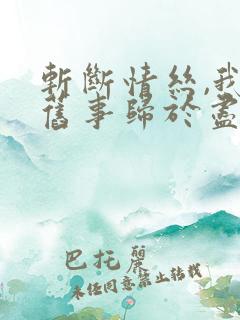 斬斷情絲,我
舊事歸於盡
巴托麗
未任同意禁止轉載